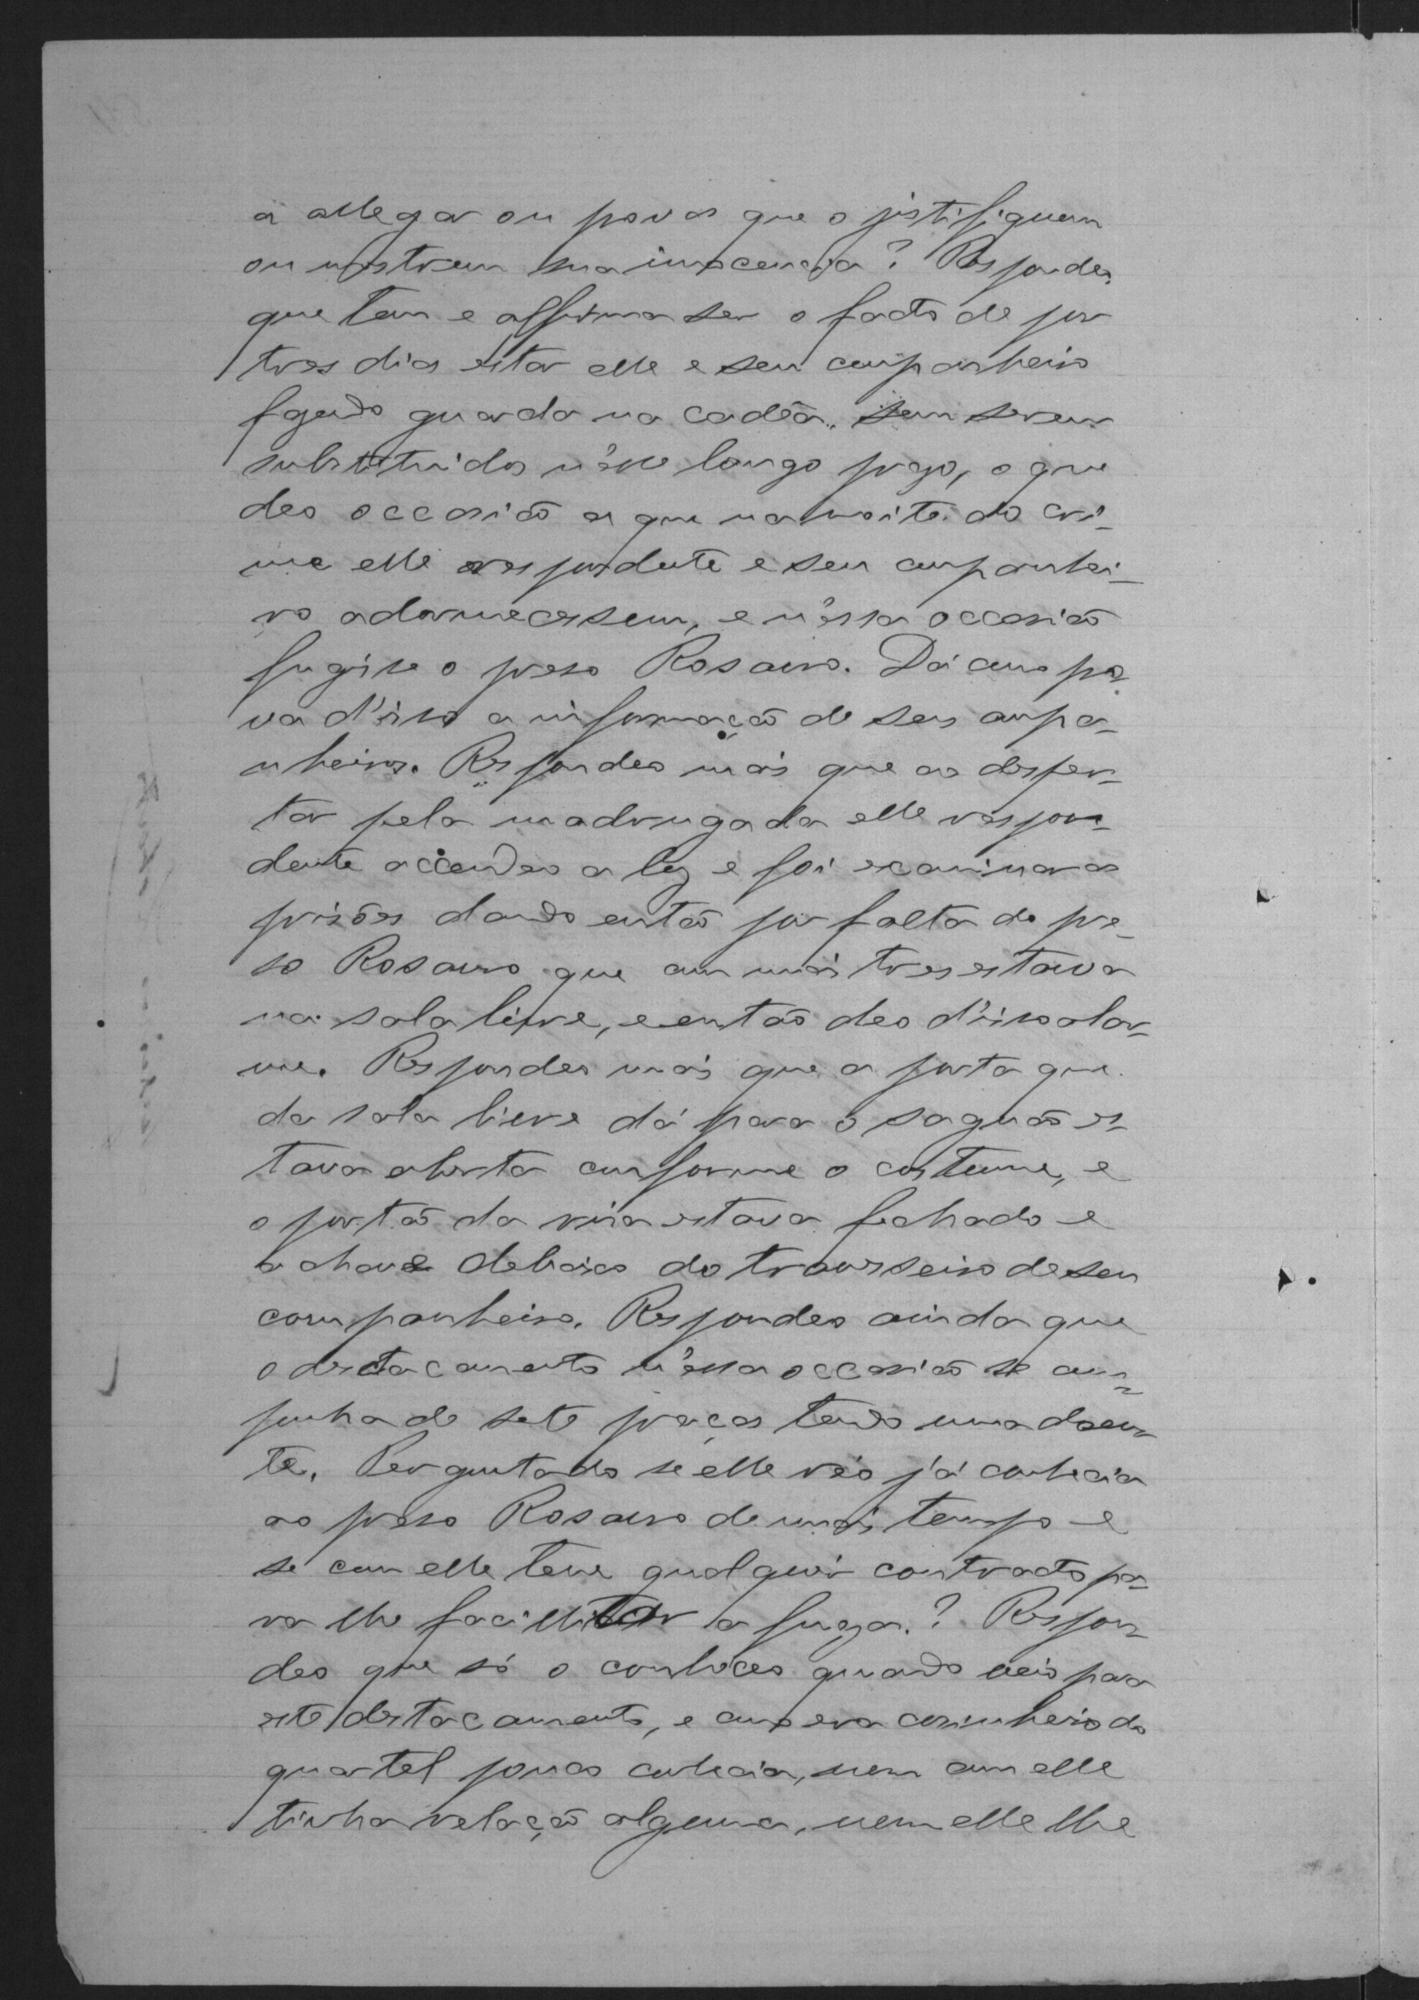 a allegar ou provas que o justifiquem
ou mostrem sua innocencia? Respondeo
que tem e affirma ser o facto de por
tres dias estar elle e seu companheiro
fazendo guarda na cadêa, sem serem
substituidos n'esse longo prazo, o que
deo occasião a que na noite do cri-
me elle respondente e seu companhei-
ro adormecessem, e n'essa occasião
fugisse o preso Rosauro. Dá como pro-
va d'isso a informação de seu compa-
nheiro. Respondeo mais que ao desper-
tar pela madrugada elle respon-
dente accendeo a luz e foi examinar as
prisões dando então por falta do pre-
so Rosauro que com mais tres estava
na sala livre, e então deo d'isso alar-
me. Respondeo mais que a porta que
da sala livre dá para o saguão es-
tava aberta conforme o costume, e
o portão da rua estava fechado e
a chave debaixo do travesseiro de seu
companheiro. Respondeo ainda que
o destacamento n'essa occasião se com-
punha de sete praças tendo uma doen-
te. Perguntado se elle réo já conhecia
ao preso Rosauro de mais tempo e
se com elle teve qualquer contracto pa-
ra lhe facilitar a fuga? Respon-
deo que só o conheceo quando veio para
este destacamento, e como era cosinheiro do
quartel pouco conhecia, nem com elle
tinha relação alguma, nem elle lhe